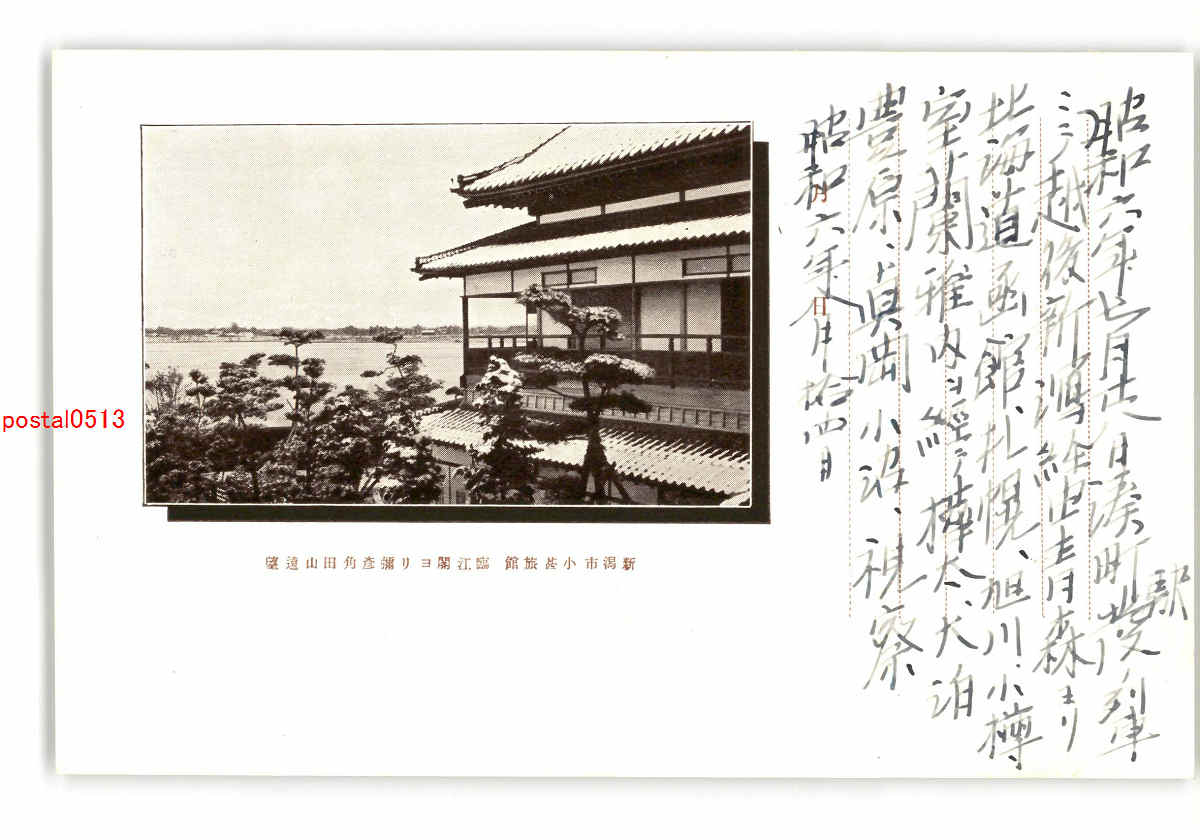 昭和六年七月日湊町駅發列車
ニテ越後新潟経由青森ヨリ
北海道函館、札幌、旭川、小樽
室蘭、稚内ヲ經テ樺太、大泊
豊原、眞岡、小沼、視察
昭和六年月拾四日
月 日
新潟市小甚旅館 臨江閣ヨリ彌彦角田山遠望
postal0513